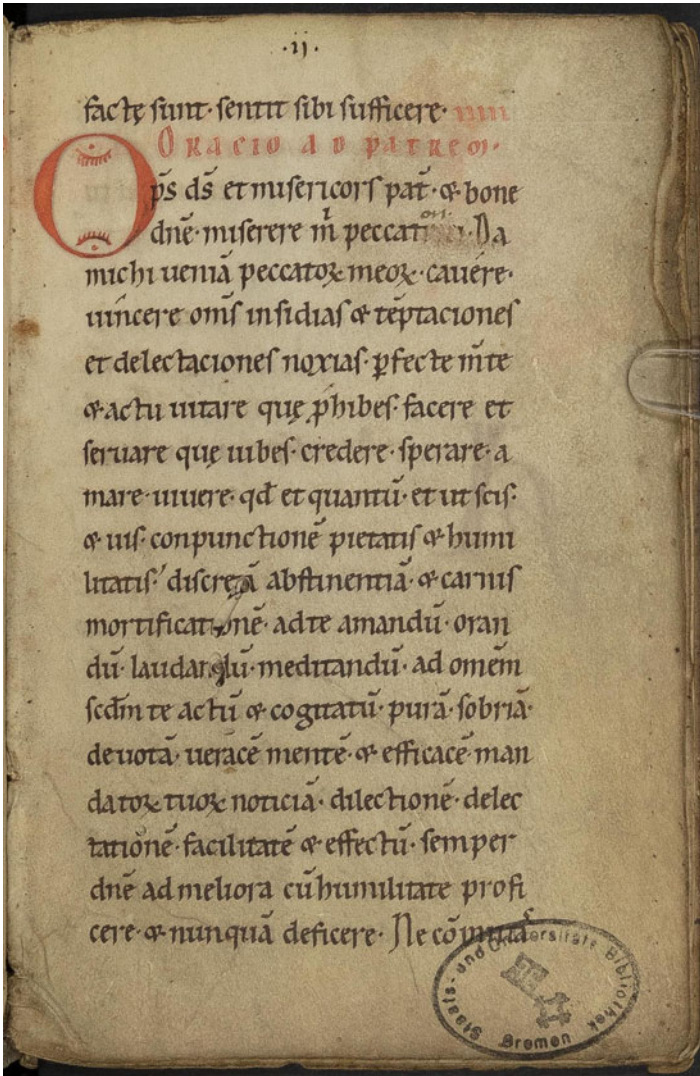 .ij.
factę sunt· sentit sibi sufficere·
Oracio ad patrem·
Op̄s ds̄ et misericors pat̄· & bone
dn̄e· miserere m̄ peccatori· Da
michi ueniā peccatoꝝ meoꝝ· cauére·
uincere om̄s insidias & tēptaciones
et delectaciones noxias· ꝑfecte m̄te
& actu uitare quę ꝓhibes· facere et
seruare quę iubes· credere· sperare· a
mare· uiuere· qd̄ et quantū· et ut scis·
& uis· conpunctionē pietatis & humi
litatis· discretā abstinentiā· & carnis
mortificationē· ad te amandū· oran
dū· laudandū· meditandū· ad omēm
scdm̄ te actū & cogitatū· purā· sobriā·
deuotā· ueracē mentē· & efficacē man
datoꝝ tuoꝝ noticiā· dilectionē· delec
tationē· facilitatē & effectū· semper
dn̄e ad meliora cū humilitate profi
cere· & nunquā deficere· Ne cōmitta
Staats- und Universitäts Bibliothek
Bremen